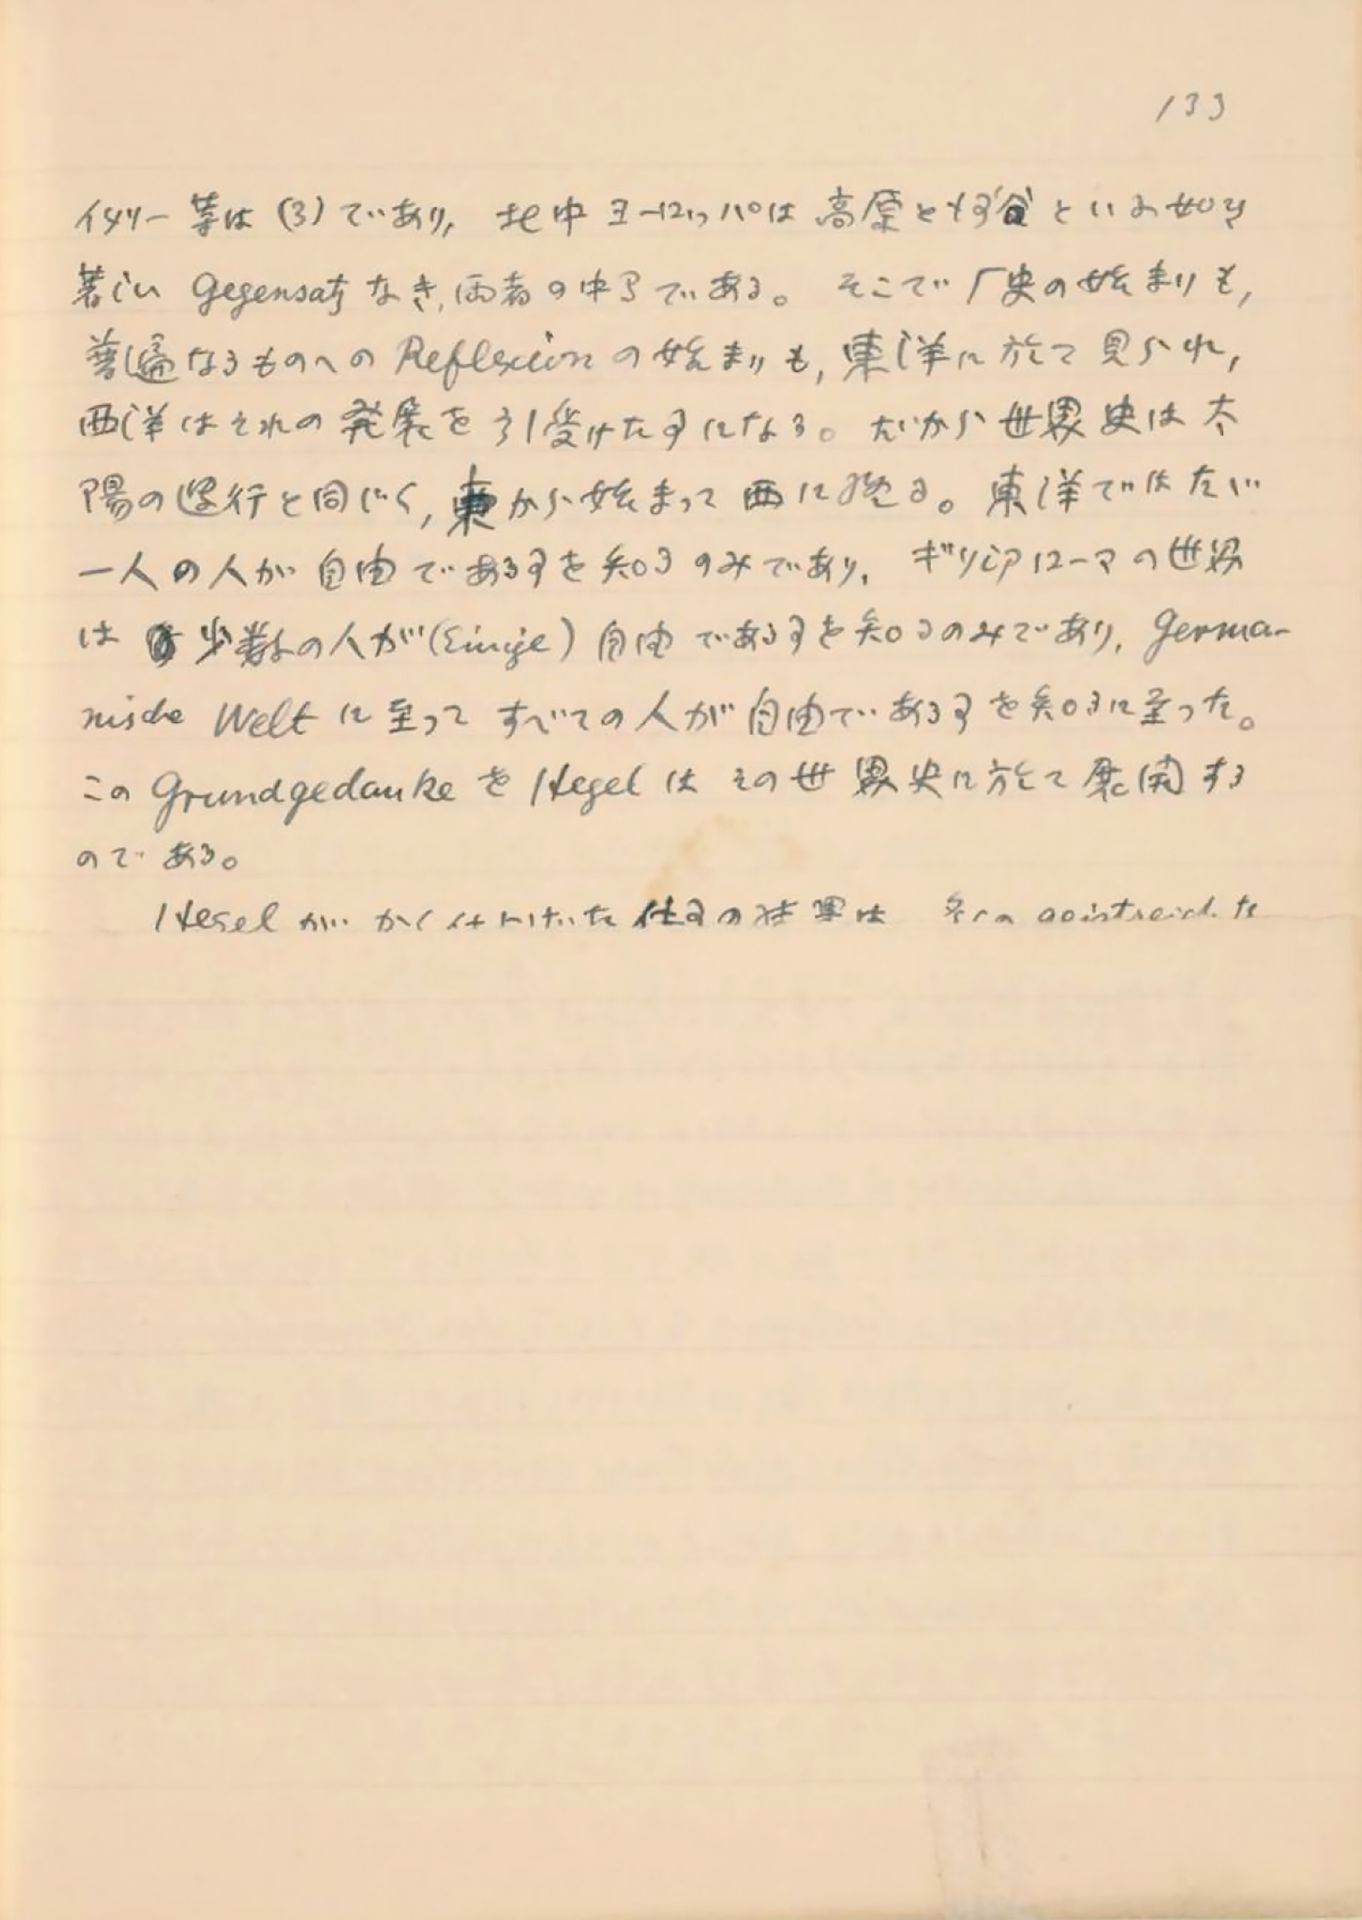 133
イタリー等は(3)であり、北中ヨーロッパは高原と峡谷といふ如き
著しい Gegensatz なき、両者の中間である。そこで厂史の始まりも,
普遍なるものへの Reflexion の始まりも, 東洋に於て見られ,
西洋はそれの発展を引受けた事になる。だから世界史は太
陽の運行と同じく, 東から始まって西に終る。東洋ではたゞ
一人の人が自由である事を知るのみであり、ギリシアローマの世界
は 少数の人が(Einige) 自由である事を知るのみであり、Germa-
nische Welt に至ってすべての人が自由である事を知るに至った。
この Grundgedanke を Hegel はその世界史に於て展開する
のである。
Hegel が かく 仕事の結果は geistreich な